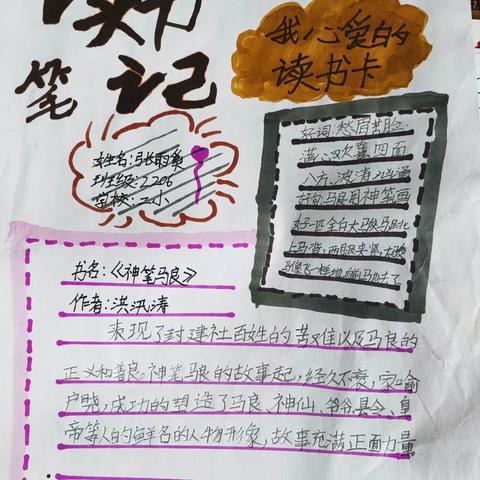 笔记
我心爱的
读书卡
姓名:张雨
班级:2206
学校:二小
好词:愁眉苦脸、
满心欢喜、四面
八方、波涛汹涌
好句:马良用神笔画
好一匹全白大马骏马足北
上马背,两腿夹紧,大骏
马像飞一样地啪马也去了
书名:《神笔马良》
作者:洪汛涛
表现了封建社百姓的苦难以及马良的
正义和善良。神笔马良的故事起,经久不衰,家喻
户晓,成功的塑造了马良、神仙、爷爷、县令、皇
帝等人的鲜名的人物形象,故事充满正面力量